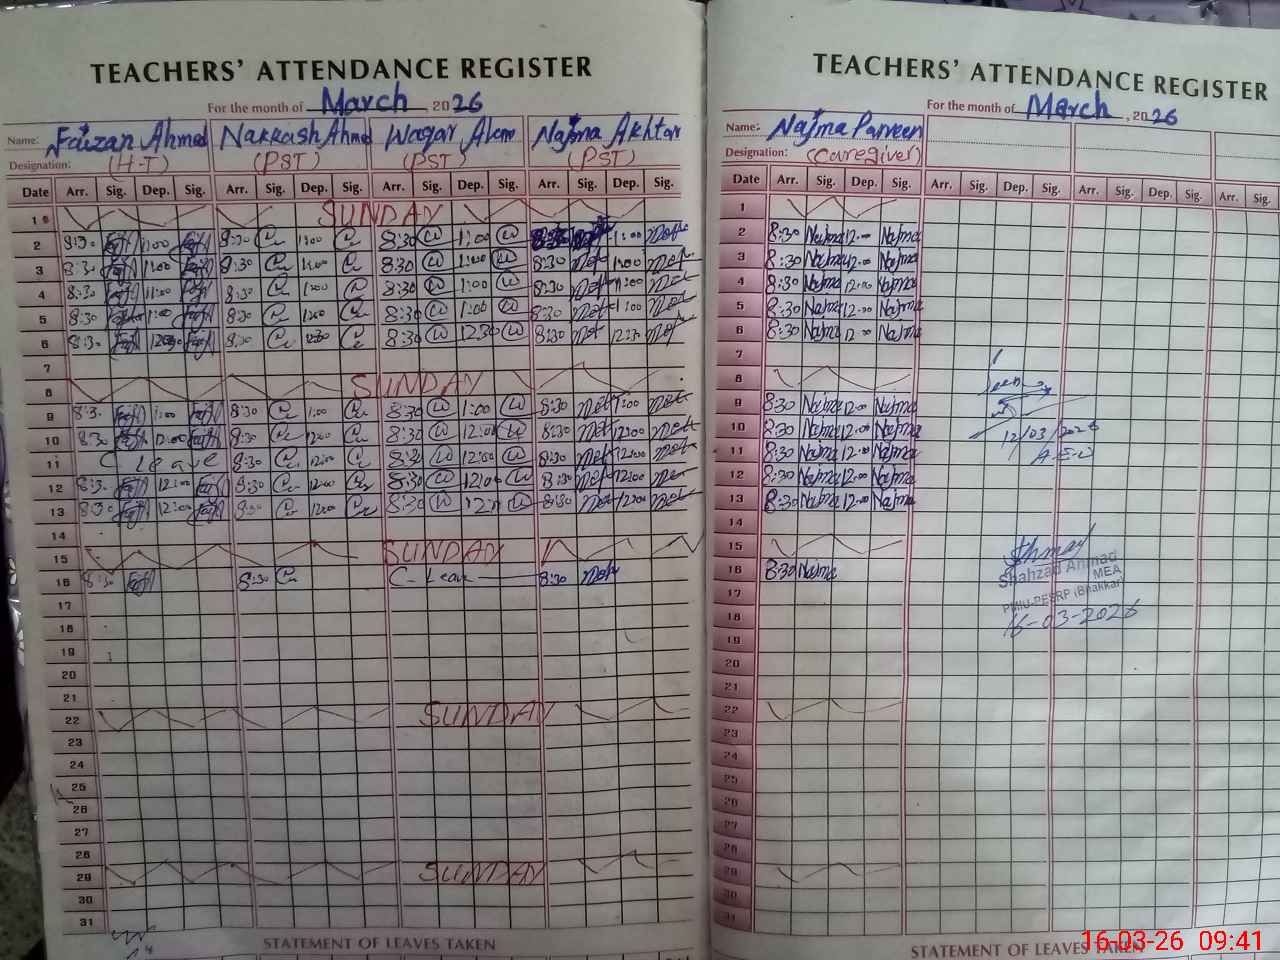 TEACHERS' ATTENDANCE REGISTER
For the month of March, 2026
Name: Faizan Ahmed Nakkash Ahmd Waqar Alam Najma Akhtar
Designation: (H-T) (PST) (PST) (PST)
Date Arr. Sig. Dep. Sig. Arr. Sig. Dep. Sig. Arr. Sig. Dep. Sig. Arr. Sig. Dep. Sig.
1 SUNDAY
2 8:30 1:00 8:30 1:00 8:30 1:00 1:00
3 8:30 1:00 8:30 1:00 8:30 1:00 8:30 1:00
4 8:30 1:00 8:30 1:00 8:30 1:00 8:30 1:00
5 8:30 1:00 8:30 1:00 8:30 1:00 8:30 1:00
6 8:30 12:30 8:30 12:30 8:30 12:30 8:30 12:30
7
8 SUNDAY
9 8:30 1:00 8:30 1:00 8:30 1:00 8:30 1:00
10 8:30 12:00 8:30 12:00 8:30 12:00 8:30 12:00
11 C Leave 8:30 12:00 8:30 12:00 8:30 12:00
12 8:30 12:00 8:30 12:00 8:30 12:00 8:30 12:00
13 8:30 12:00 8:30 12:00 8:30 8:30 12:00
14
15 SUNDAY
16 8:30 8:30 C- Leave 8:30
17
18
19
20
21
22 SUNDAY
23
24
25
26
27
28
29 SUNDAY
30
31
STATEMENT OF LEAVES TAKEN
TEACHERS' ATTENDANCE REGISTER
For the month of March, 2026
Name: Najma Parveen
Designation: (caregiver)
Date Arr. Sig. Dep. Sig. Arr. Sig. Dep. Sig. Arr. Sig. Dep. Sig. Arr. Sig.
1
2 8:30 Najma 12:00 Najma
3 8:30 Najma 12:00 Najma
4 8:30 Najma 12:00 Najma
5 8:30 Najma 12:00 Najma
6 8:30 Najma 12:00 Najma
7
8
9 8:30 Najma 12:00 Najma
10 8:30 Najma 12:00 Najma
11 8:30 Najma 12:00 Najma
12 8:30 Najma 12:00 Najma
13 8:30 Najma 12:00 Najma
14
15
16 8:30 Najma
17
18
19
20
21
22
23
24
25
26
27
28
29
30
31
Seen
12/03/2026
A.E.O
Shahzad Ahmad
MEA
PMIU-PESRP (Bhakkar)
16-03-2026
STATEMENT OF LEAVES TAKEN
16-03-26 09:41